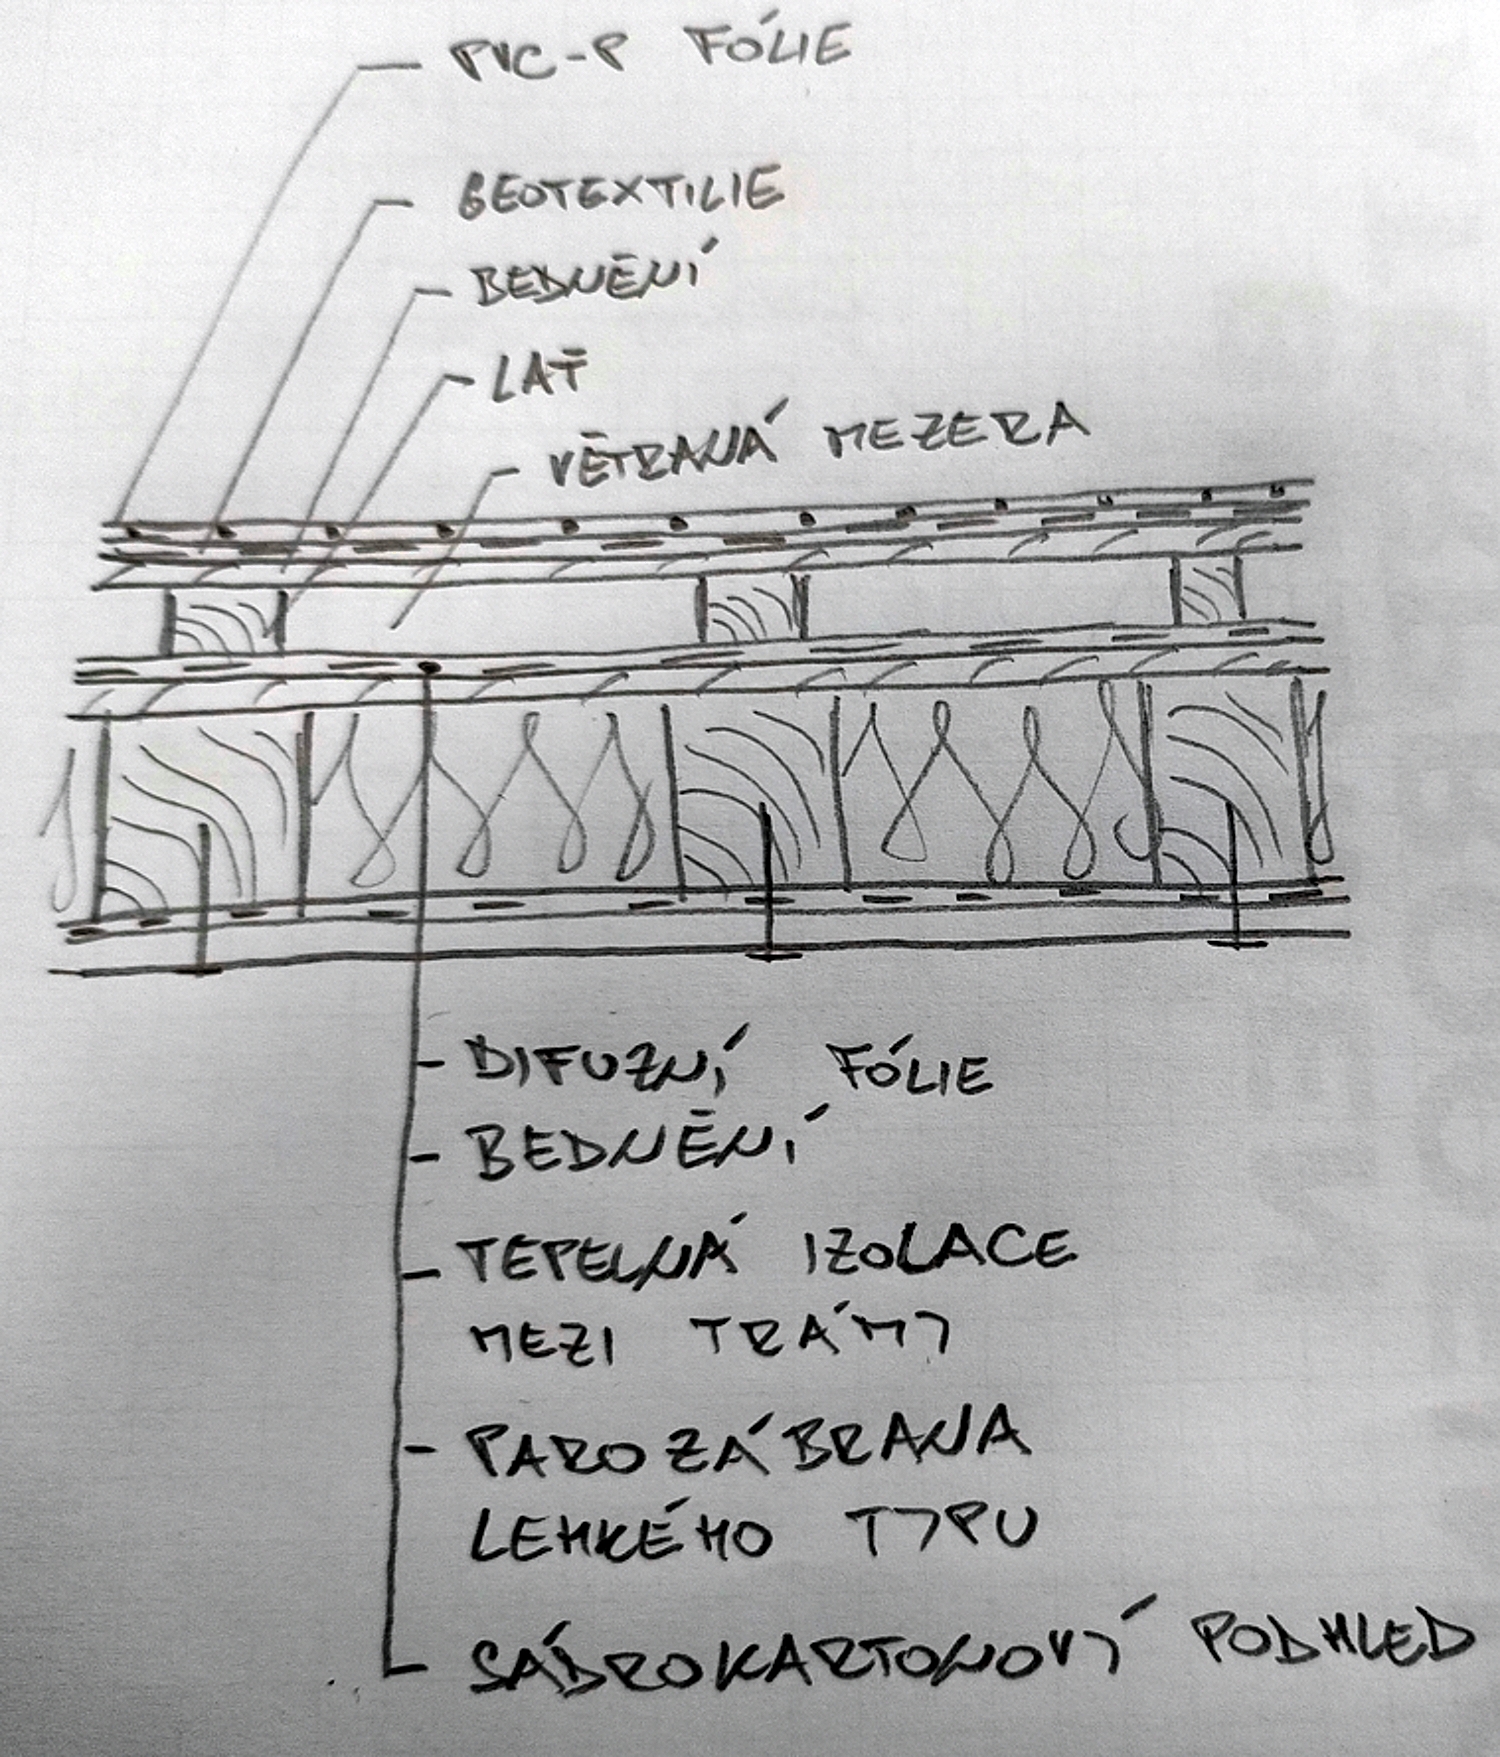 PVC-P FÓLIE
GEOTEXTILIE
BEDNĚNÍ
LAŤ
VĚTRANÁ MEZERA
- DIFUZNÍ FÓLIE
- BEDNĚNÍ
- TEPELNÁ IZOLACE
MEZI TRÁMY
- PAROZÁBRANA
LEHKÉHO TYPU
- SÁDROKARTONOVÝ PODHLED